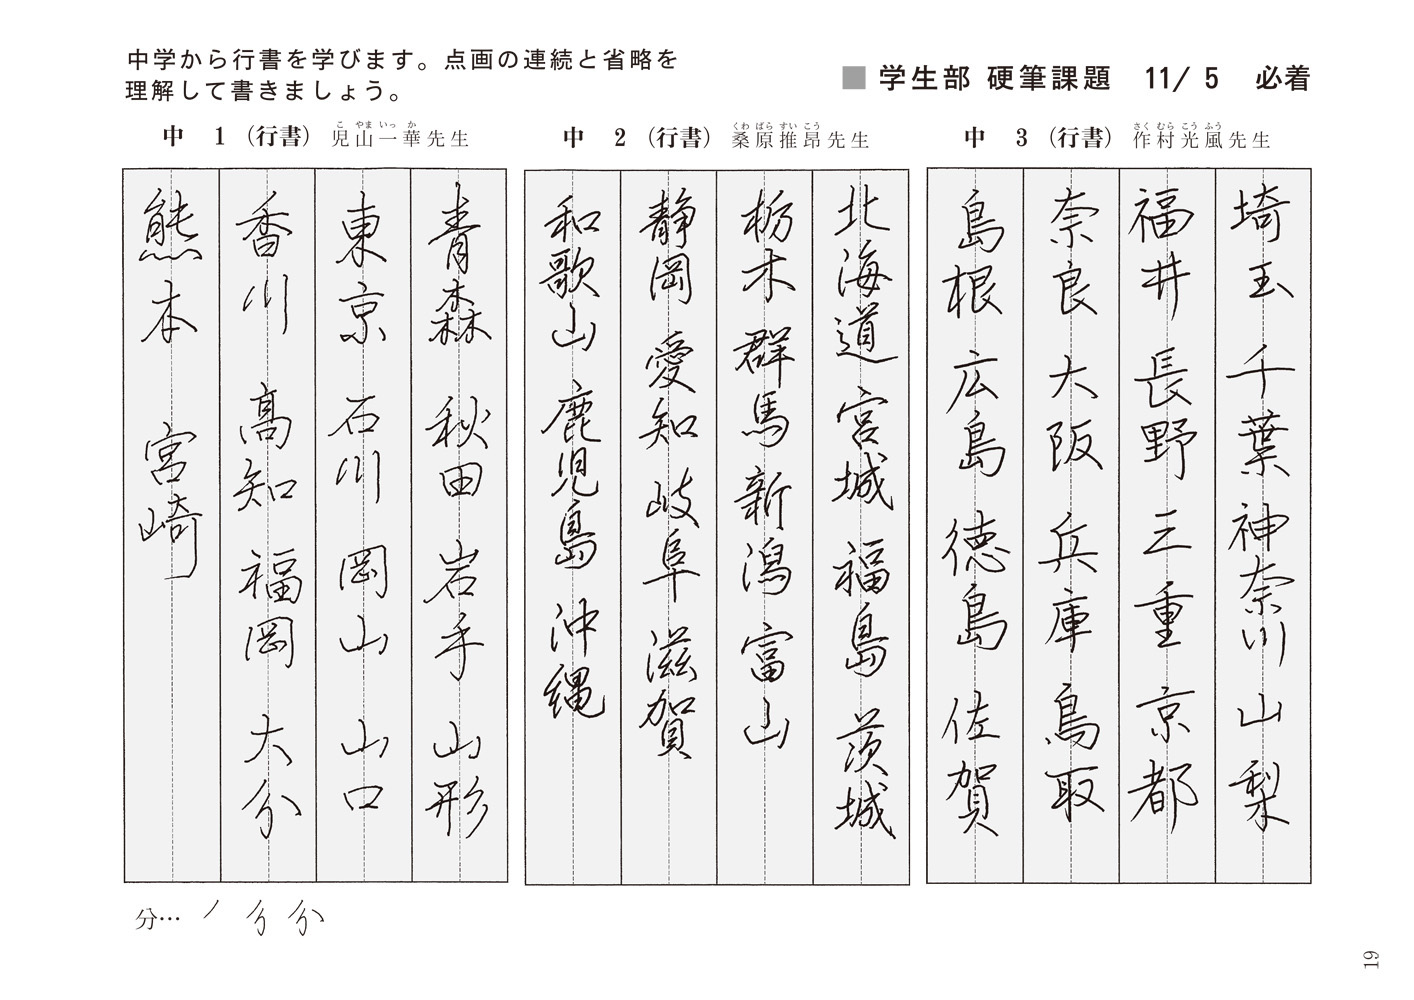 中学から行書を学びます。点画の連続と省略を
理解して書きましょう。
■ 学生部 硬筆課題 11/ 5 必着
中 1 (行書) 児山一華先生
こ やま いっ か
青森 秋田 岩手 山形
東京 石川 岡山 山口
香川 高知 福岡 大分
熊本 宮崎
分… ノ 分 分
中 2 (行書) 桑原推昂先生
くわ ばら すい こう
北海道 宮城 福島 茨城
栃木 群馬 新潟 富山
静岡 愛知 岐阜 滋賀
和歌山 鹿児島 沖縄
中 3 (行書) 作村光風先生
さく むら こう ふう
埼玉 千葉 神奈川 山梨
福井 長野 三重 京都
奈良 大阪 兵庫 鳥取
島根 広島 徳島 佐賀
19